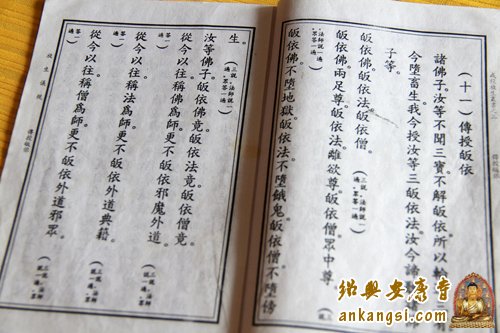 (十一)傳授皈依
諸佛子。汝等不聞三寶。不解皈依。所以輪
今墮畜生。我今授汝等三皈依法。汝今諦
子等。
皈依佛。皈依法。皈依僧。(三說,法師說一遍,眾答一遍)
皈依佛兩足尊。皈依法離欲尊。皈依僧眾中尊。
皈依佛不墮地獄。皈依法不墮餓鬼。皈依僧不墮傍
生。(三說,法師說一遍,眾答一遍)
汝等佛子。皈依佛竟。皈依法竟。皈依僧竟。
從今以往。稱佛為師。更不皈依邪魔外道。
從今以往。稱法為師。更不皈依外道典籍。
從今以往。稱僧為師。更不皈依外道邪眾。
放生儀規
傳授皈依
紹興安康寺
ankangsi.com